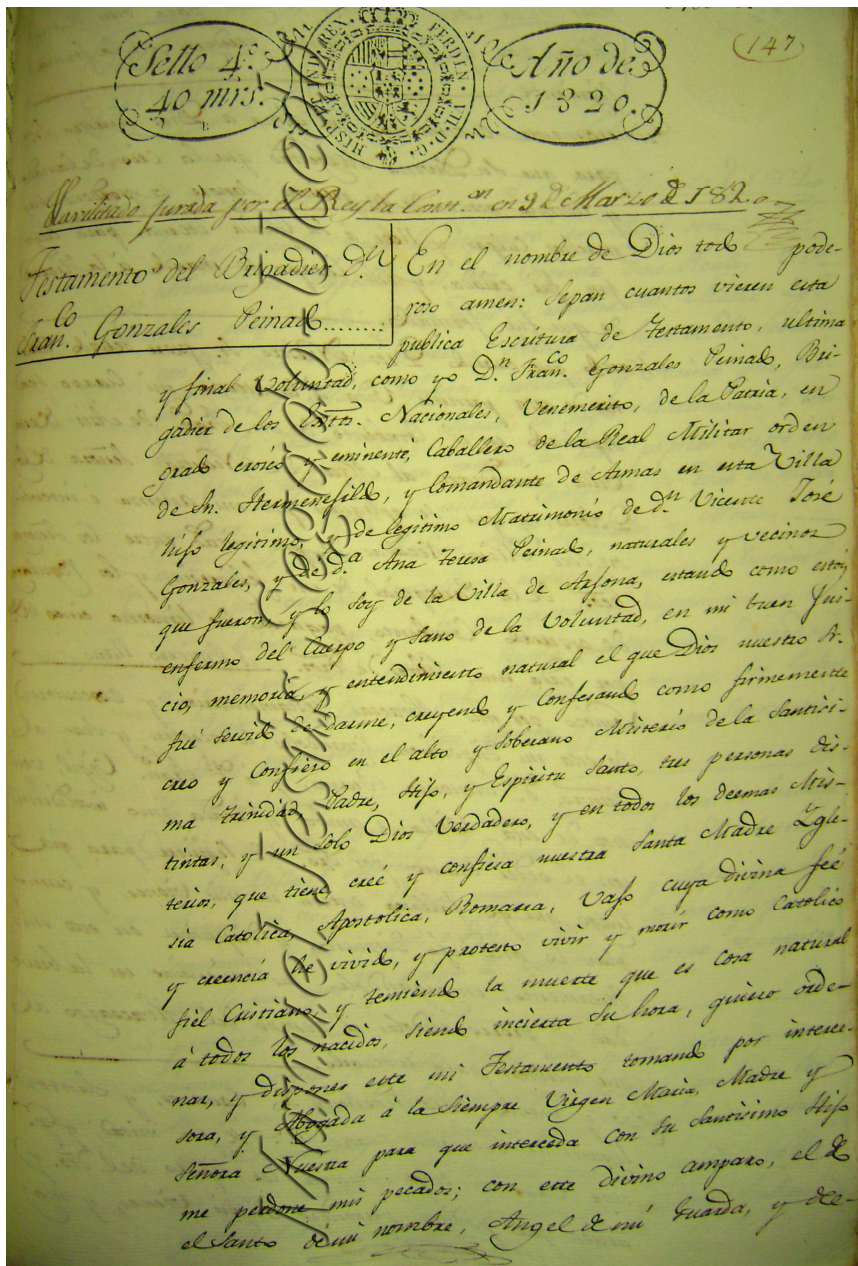 (147)
Sello 4º
40 mrs.
HISP. ET IND. REX. FERDIN. VII. D. G.
Año de
1820.
Havilitado jurada por el Rey la Con.on en 9 de Marzo de 1820
Testamento del Brigadier D.n
Fran.co Gonzales Peinado........
En el nombre de Dios todo pode-
roso amen: Sepan cuantos vieren esta
publica Escritura de Testamento, ultima
y final Voluntad, como yo D.n Fran.co Gonzales Peinado, Bri-
gadier de los Extos. Nacionales, Venemerito, de la Patria, en
grado eroico y eminente, Caballero de la Real Militar orden
de Sn. Hermenefildo, y Comandante de Armas en esta Villa
hijo legitimo, y de legitimo Matrimonio de d.n Vicente José
Gonzales, y de d.a Ana Teresa Peinado, naturales y vecinos
que fueron, y lo soy de la Villa de Arjona, estando como estoy
enfermo del Cuerpo y Sano de la Voluntad, en mi buen Jui-
cio, memoria, y entendimiento natural el que Dios nuestro Sr.
fué servido de darme, creyendo y Confesando como firmemente
creo y Confieso en el alto y Soberano Misterio de la Santici-
ma Trinidad, Padre, Hijo, y Espiritu Santo, tres personas dis-
tintas, y un solo Dios Verdadero, y en todos los demas Mis-
terios, que tiene creé y confiesa nuestra Santa Madre Ygle-
sia Catolica, Apostolica, Romana, Vajo cuya divina feé
y creencia he vivido, y protesto vivir y morir como Catolico
fiel Cristiano, y temiendo la muerte que es Cosa natural
á todos los nacidos, siendo incierta Su hora, quiero orde-
nar, y disponer este mi Testamento tomando por interce-
sora, y Abogada á la Siempre Virgen Maria, Madre y
Señora Nuestra para que interceda Con Su Santicimo Hijo
me perdone mis pecados; con este divino amparo, el de
el Santo de mi nombre, Angel de mi Guarda, y de-